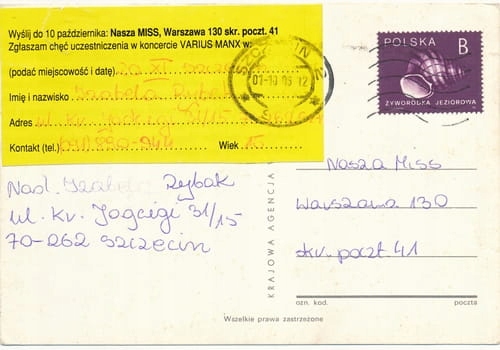 Wyślij do 10 października: Nasza MISS, Warszawa 130 skr. poczt. 41
Zgłaszam chęć uczestniczenia w koncercie VARIUS MANX w:
(podać miejscowość i datę) 20 XI
Imię i nazwisko Izabela Rybak
Adres ul. Kr. Jadwigi 31/15
Kontakt (tel.) Wiek 15
SZCZECIN 2
01-10 95 12
POLSKA B
ŻYWORÓDKA JEZIOROWA
Nad. Izabela Rybak
ul. Kr. Jagcigi 31/15
70-262 Szczecin
KRAJOWA AGENCJA
Nasza Miss
Warszawa 130
skr. poczt 41
ozn. kod. poczta
Wszelkie prawa zastrzeżone